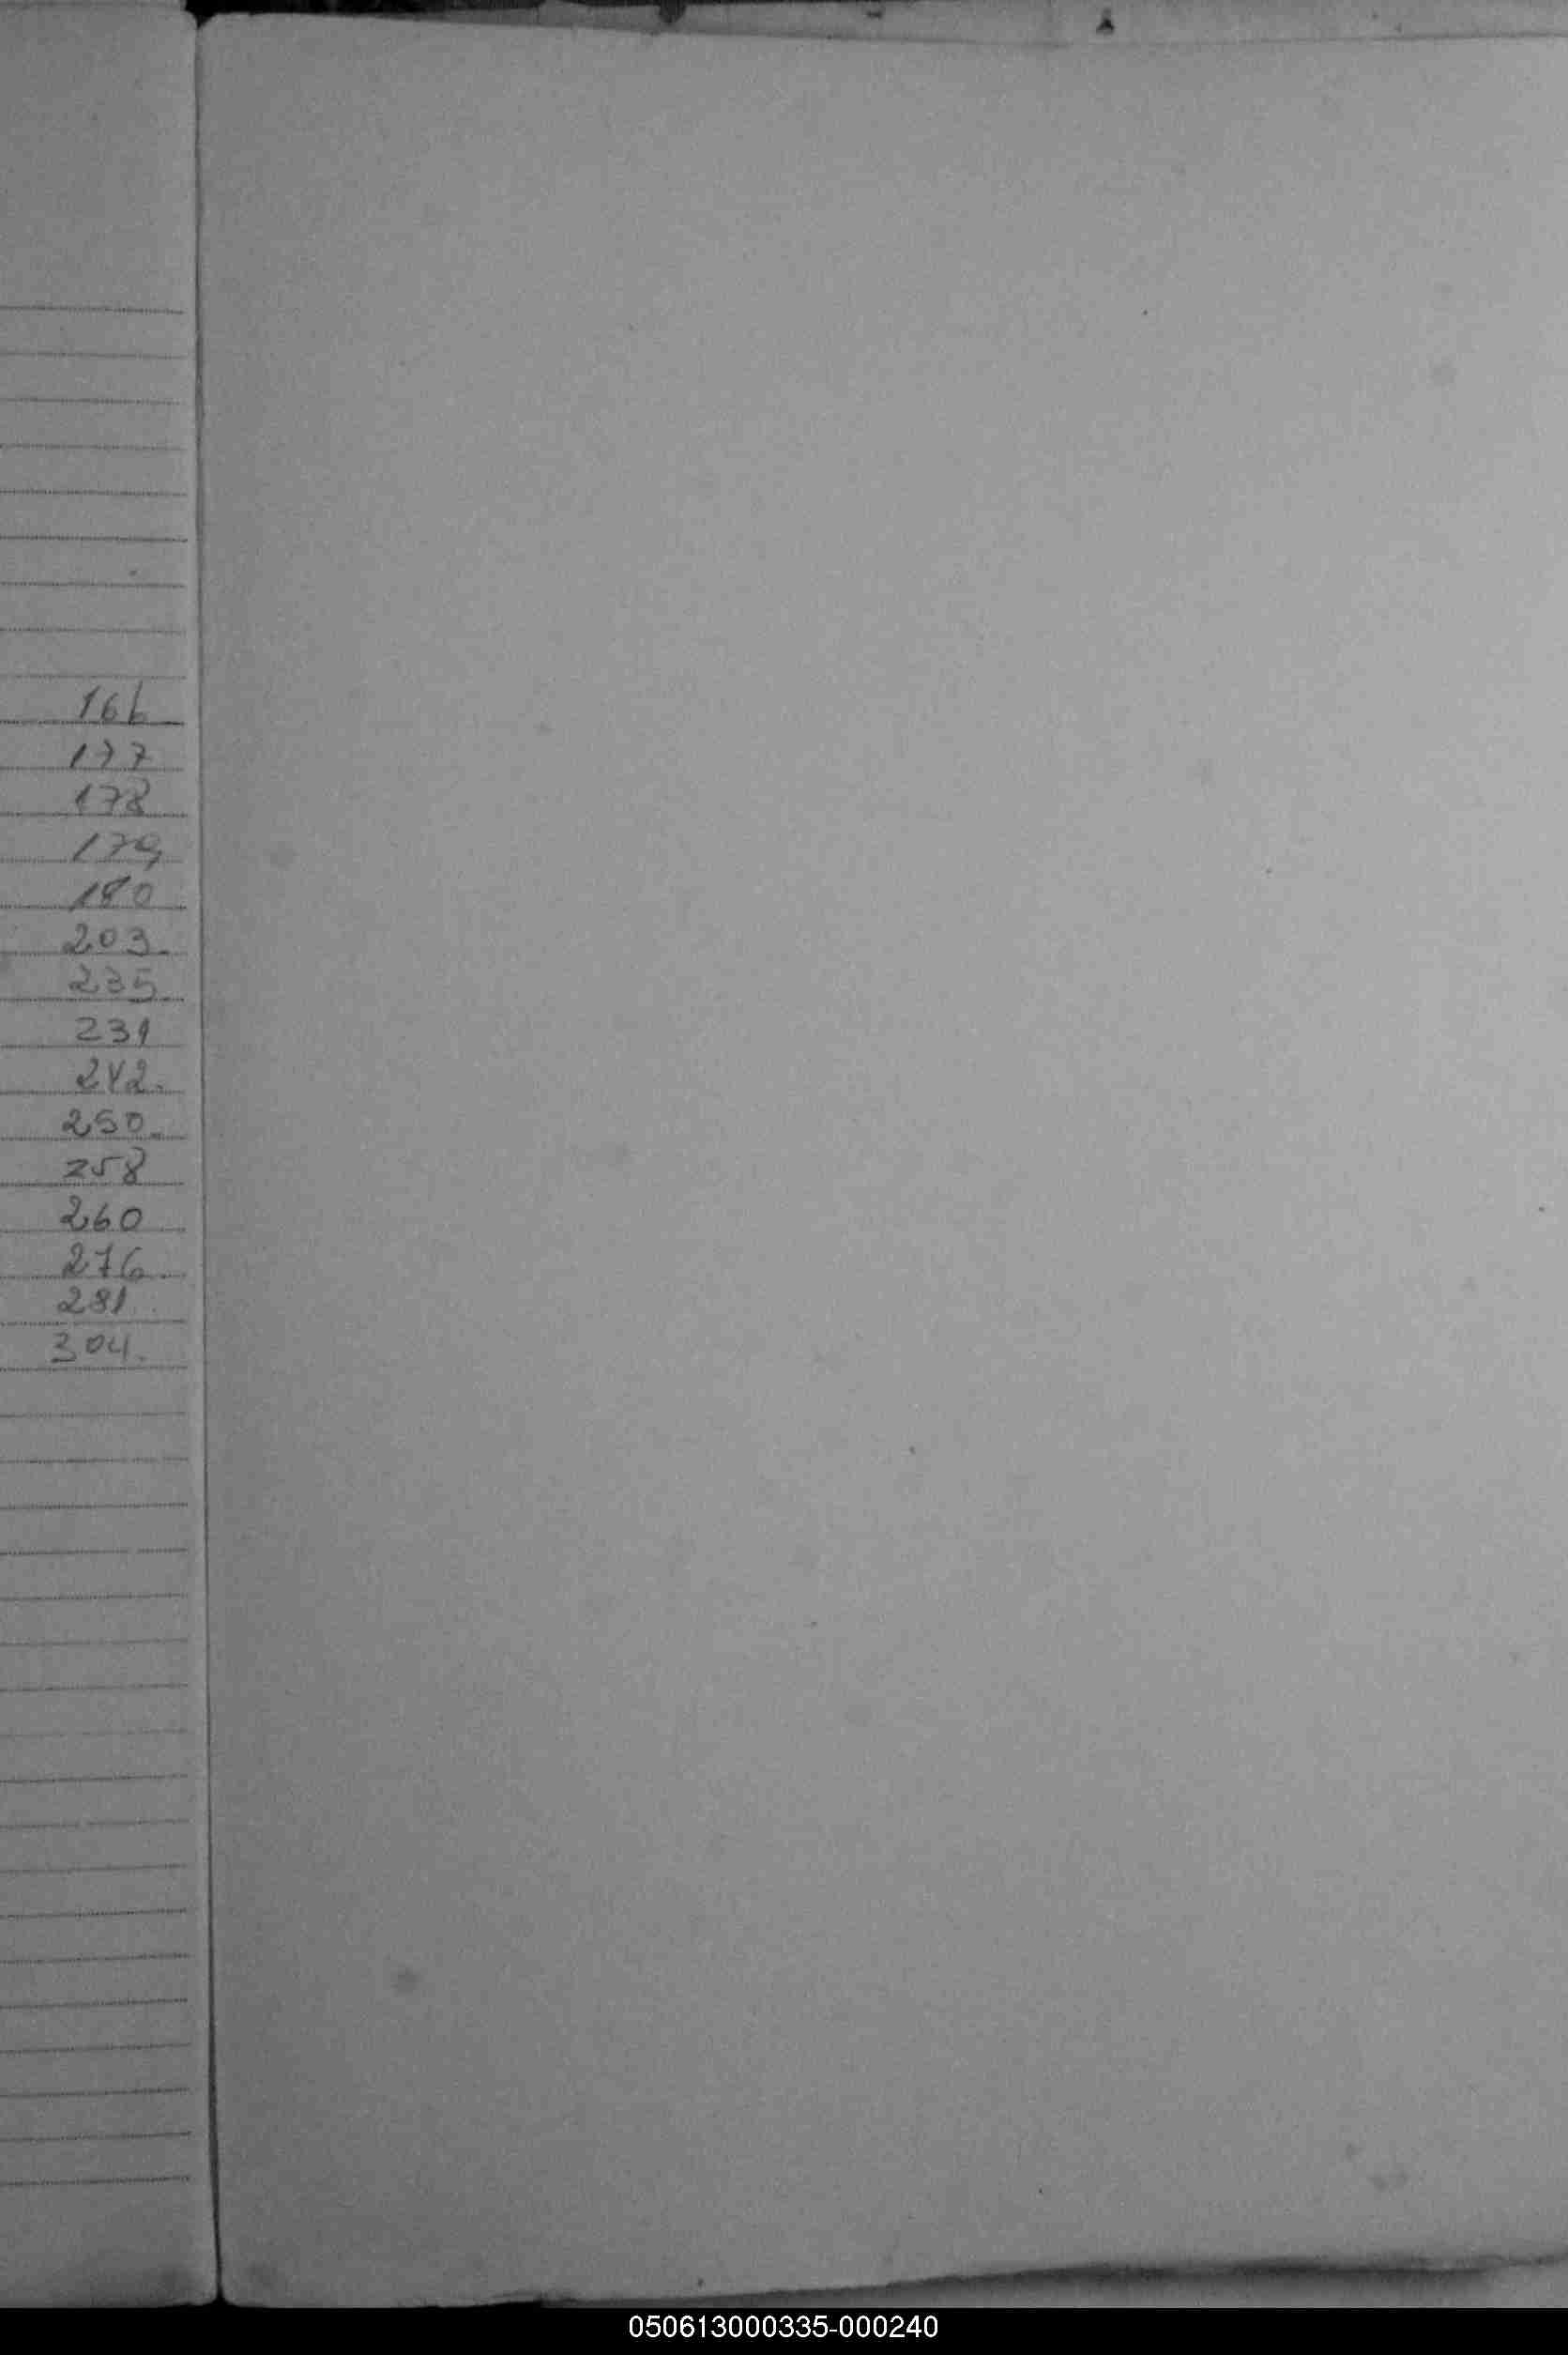 166
177
178
179
180
203.
235.
231
242.
250.
258
260
276.
281
304.
050613000335-000240